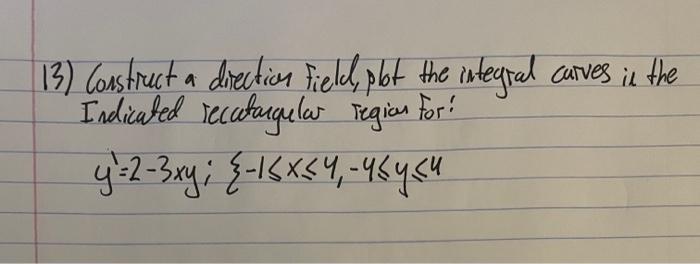 13) Construct a direction field, plot the integral curves in the
Indicated recatangular region for:
y'=2-3xy; {-1≤x≤4, -4≤y≤4